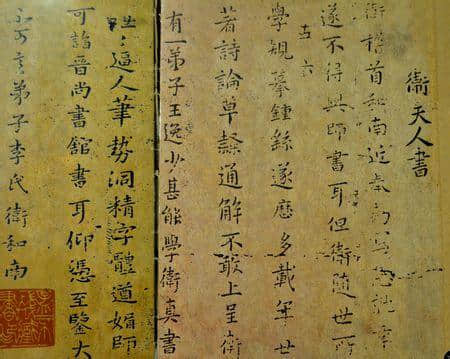 衛夫人書
衛稽首和南近奉
遂不得與師書耳但衛隨世所
學規摹鍾繇遂歷多載年
著詩論草隸通解不敢上呈衛
有一弟子王逸少甚能學衛真書
逼人筆勢洞精字體遒媚師
可詣晉尚書館書耳仰憑至鑒大
不可言弟子李氏衛和南